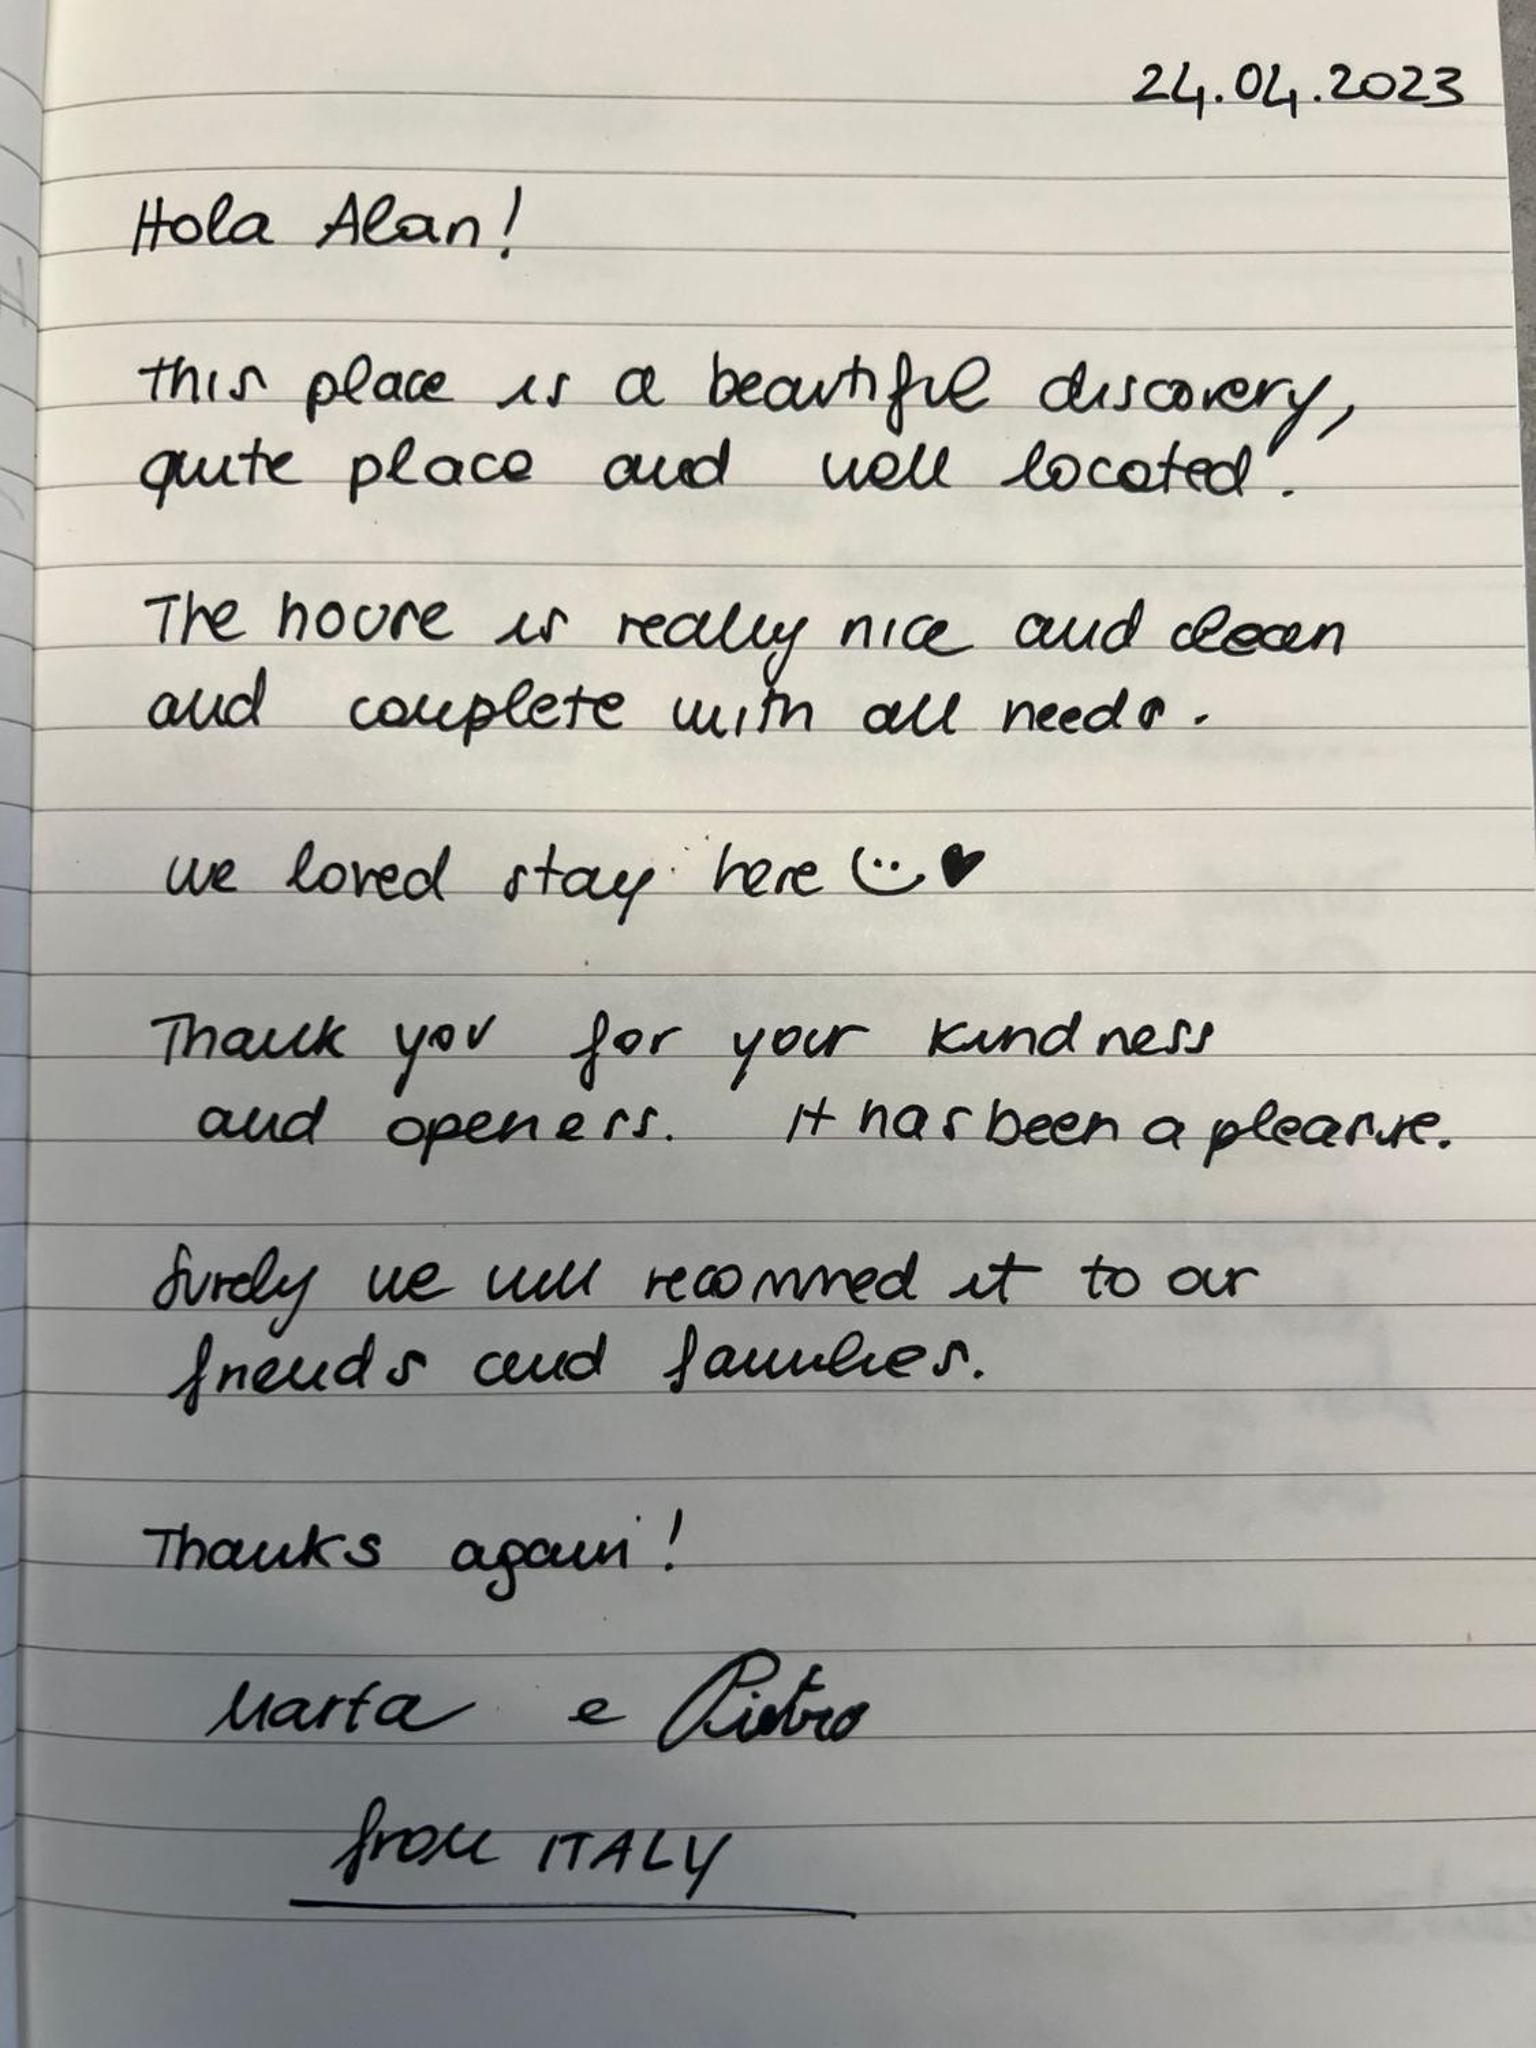 24.04.2023
Hola Alan!
This place is a beautiful discovery,
quite place and well located.
The house is really nice and clean
and complete with all needs.
we loved stay here :) ♥
Thank you for your kindness
and openess. It has been a pleasure.
Surely we will recommed it to our
friends and families.
Thanks again!
Marta e Pietro
from ITALY